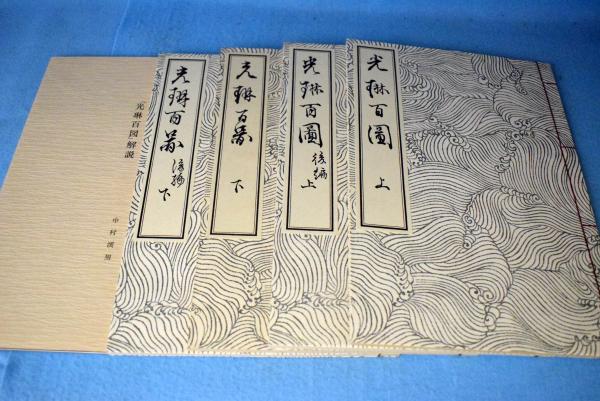 光琳百圖
上
光琳百圖
後編
上
光琳百啚
下
光琳百啚
後編
下
光琳百図解説
中村溪男